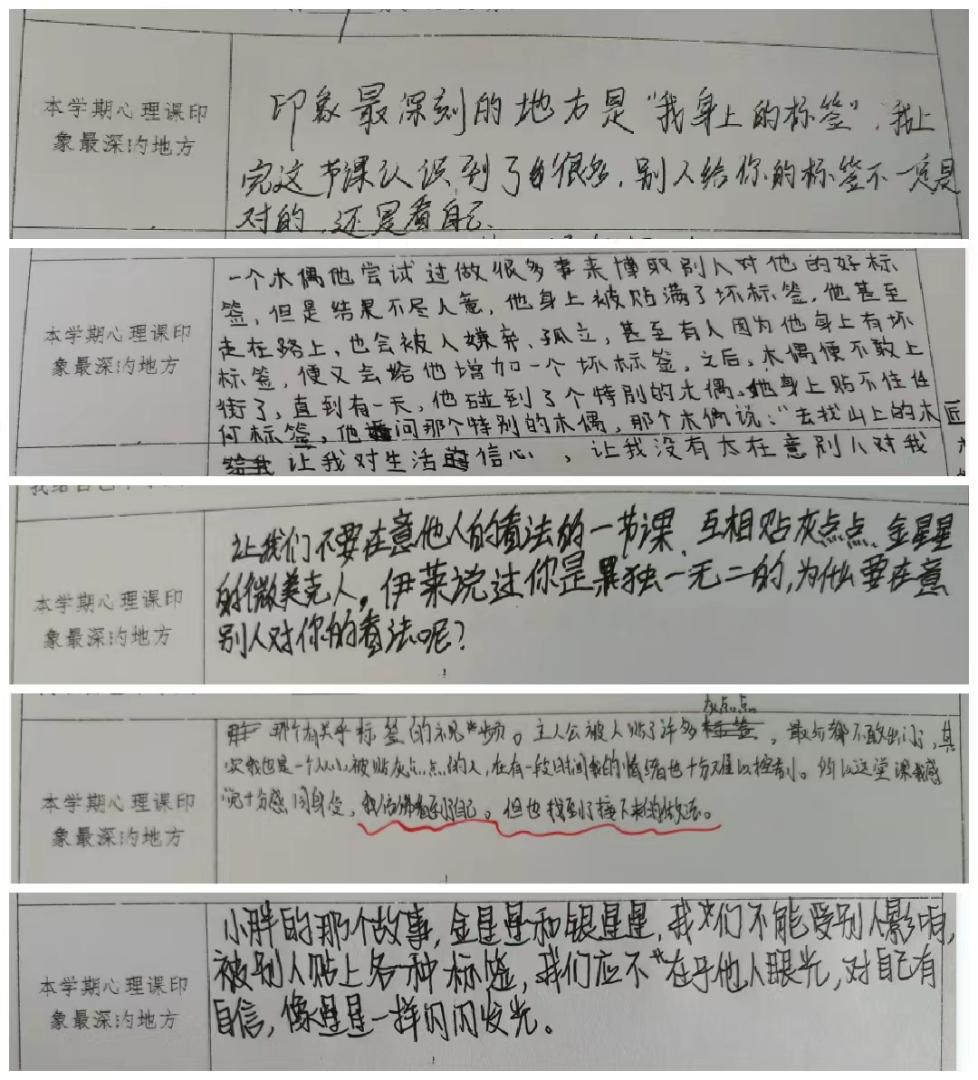 本学期心理课印
象最深的地方
印象最深刻的地方是“我身上的标签”，我上
完这节课认识到了很多，别人给你的标签不一定是
对的，还是看自己。
本学期心理课印
象最深的地方
一个木偶他尝试过做很多事来博取别人对他的好标
签，但是结果不尽人意，他身上被贴满了坏标签，他甚至
走在路上，也会被人嫌弃、孤立，甚至有人因为他身上有坏
标签，便又会给他增加一个坏标签，之后，木偶便不敢上
街了，直到有一天，他碰到了个特别的木偶，她身上贴不住任
何标签，他问那个特别的木偶，那个木偶说：“去找山上的木匠
让我对生活的信心，让我没有太在意别人对我
本学期心理课印
象最深的地方
让我们不要在意他人的看法的一节课，互相贴灰点点、金星星
的微美克人，伊莱说过你是独一无二的，为什么要在意
别人对你的看法呢？
本学期心理课印
象最深的地方
灰点点
那个有关乎标签的视频。主人公被人贴了许多，最后都不敢出门了，其
实我也是一个从小被贴灰点点的人，在有一段时间我的情绪也十分难以控制。所以这堂课我感
觉十分感同身受，我仿佛看到了自己。但也找到了接下来的做法。
本学期心理课印
象最深的地方
小胖的那个故事，金星星和银星星，我们不能受别人影响，
被别人贴上各种标签，我们应不在乎他人眼光，对自己有
自信，像星星一样闪闪发光。